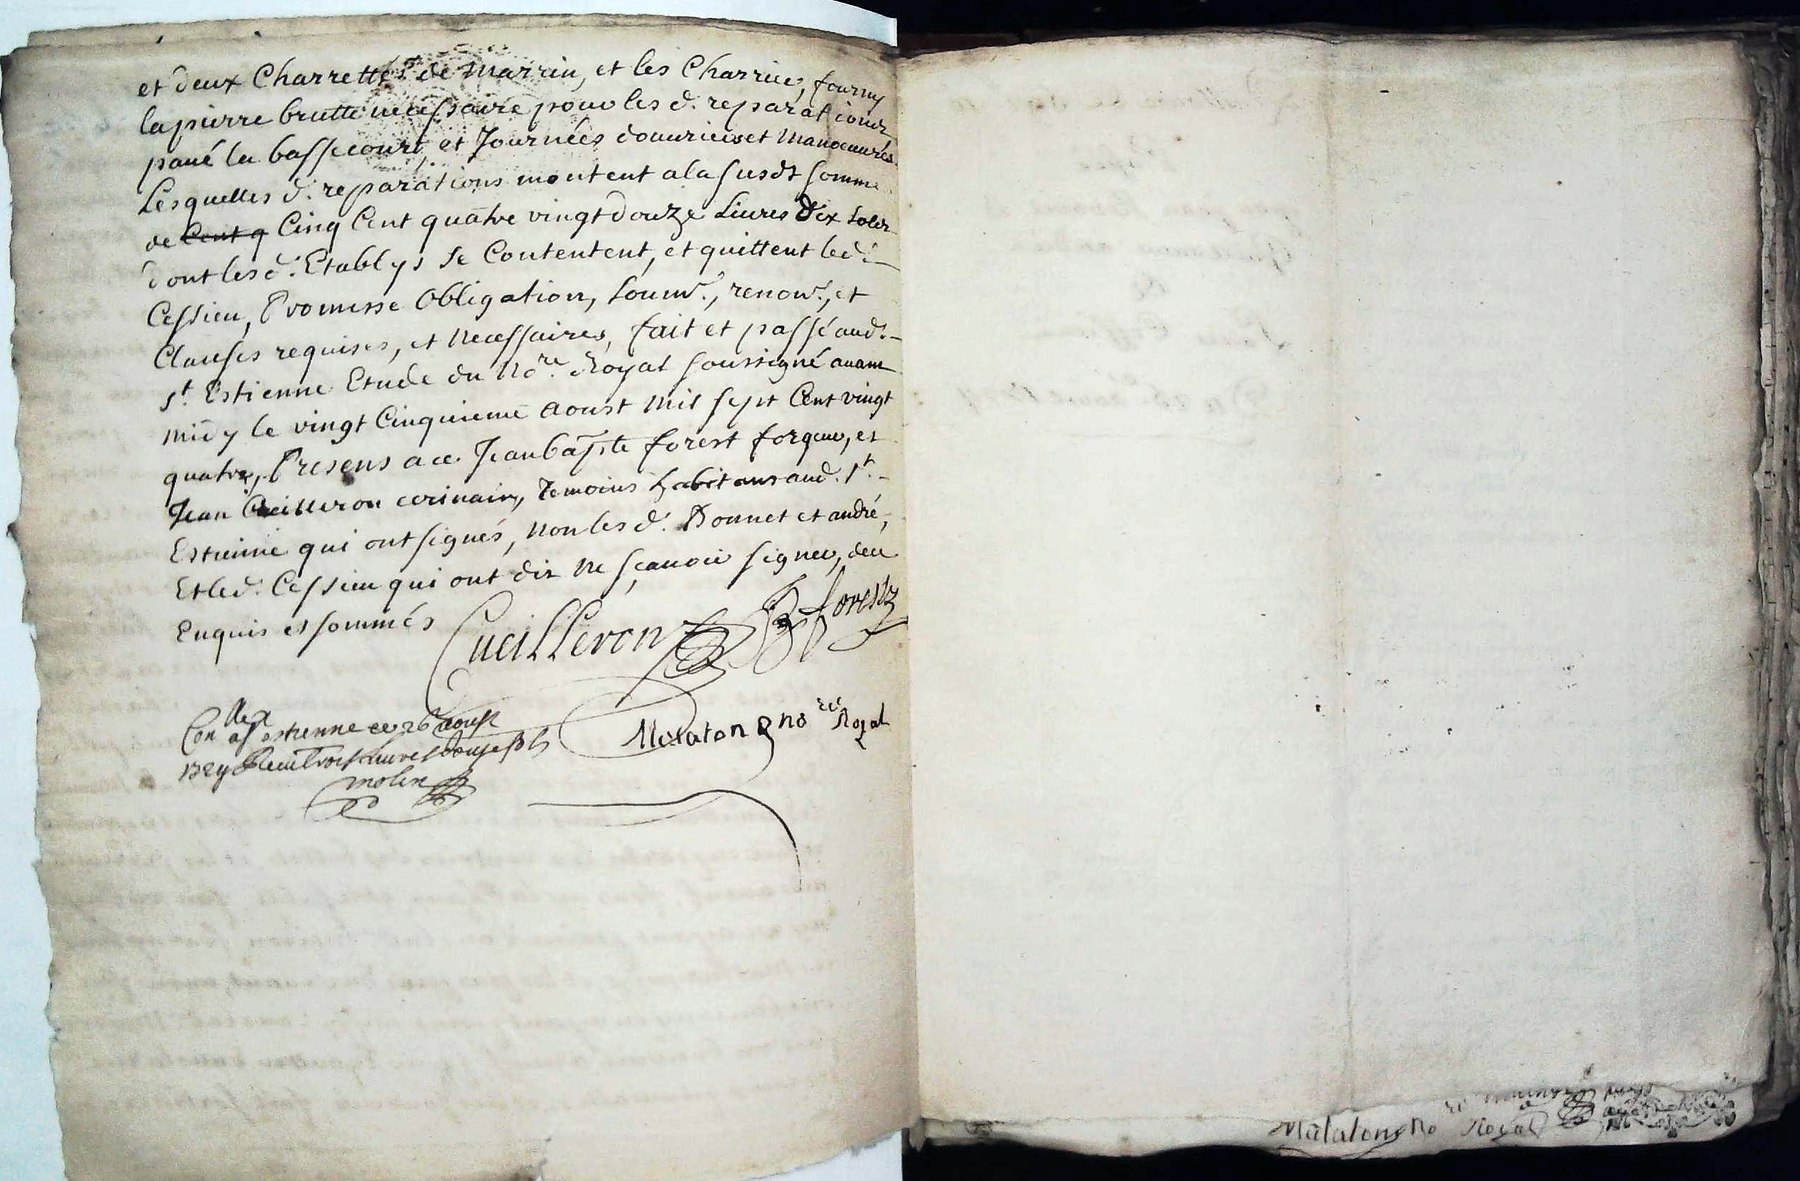 et deux Charrettes de Marrin, et les Charriés, fourny
la pierre brutte necessaire pour les d. reparations
pavé la basse court, et Journées d'ouvriers et Manoeuvres
Lesquelles d. reparations montent a la susdt somme
de Cent q Cinq Cent quatre vingt douze Livres dix solz
dont les d. Etablys se Contentent, et quittent led.
Cessieu, Promesse Obligation, soum., renon., et
Clauses requises, et necessaires, fait et passé aud.
St. Estienne Etude du Nore. Royal soussigné avant
midy le vingt Cinquieme aoust Mil sept Cent vingt
quatre, Presens a ce Jean bapte forest forgeur, et
Jean Cueilleron ecrivain, Temoins habitans aud. St.
Estienne qui ont signés, Non les d. Bonnet et andré,
Et led. Cessieu qui ont dit ne sçavoir signer, de ce
Enquis et sommés
Cueilleron
JB forest
Malaton no re Royal
Con a st estienne ce 26 aoust
molin
Malaton No Royal